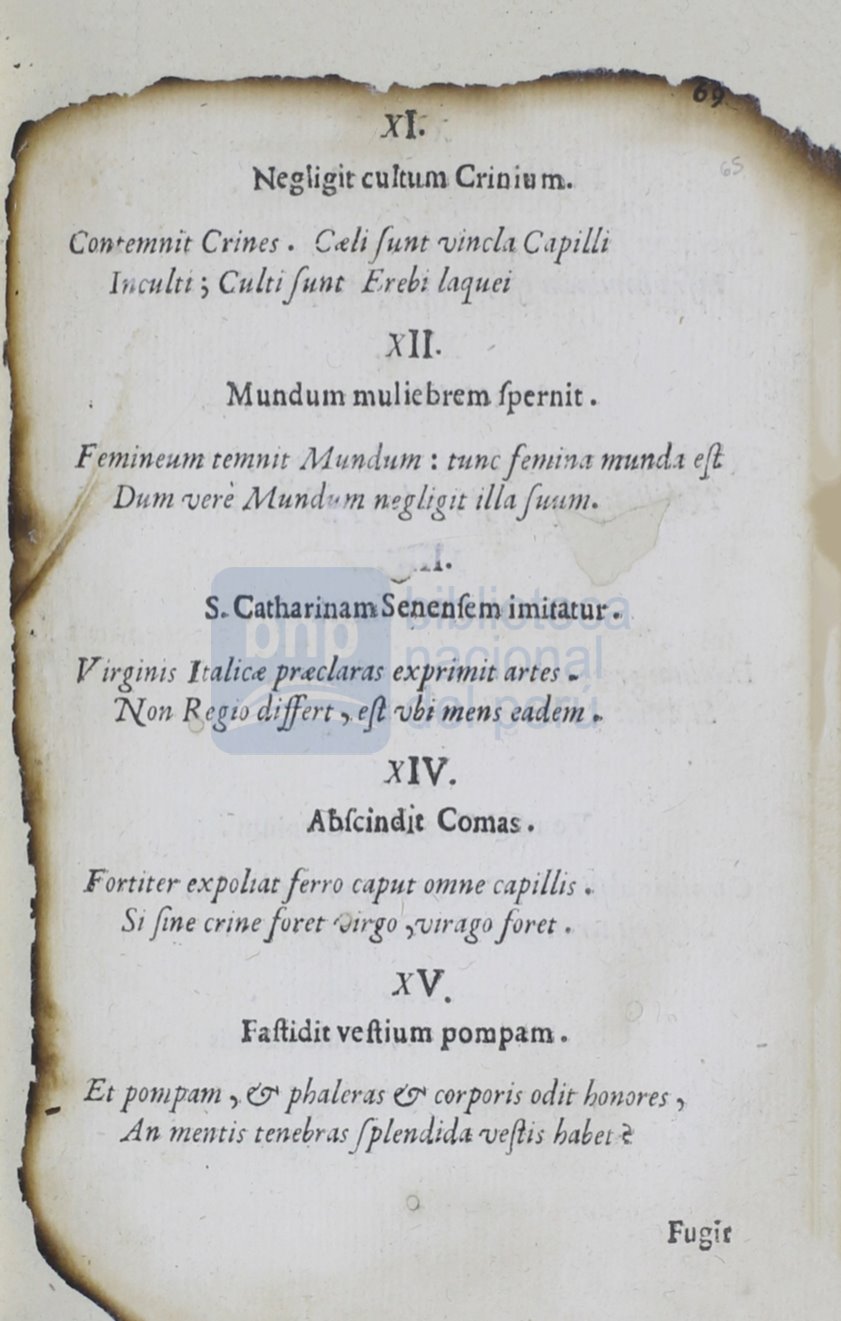 69
65
XI.
Negligit cultum Crinium.
Contemnit Crines. Cæli ſunt vincla Capilli
Inculti; Culti ſunt Erebi laquei
XII.
Mundum muliebrem ſpernit.
Femineum temnit Mundum: tunc femina munda eſt
Dum verè Mundum negligit illa ſuum.
S. Catharinam Senenſem imitatur.
Virginis Italicæ præclaras exprimit artes.
Non Regio differt, eſt vbi mens eadem.
XIV.
Abſcindit Comas.
Fortiter expoliat ferro caput omne capillis.
Si ſine crine foret virgo, virago foret.
XV.
Faſtidit veſtium pompam.
Et pompam, & phaleras & corporis odit honores,
An mentis tenebras ſplendida veſtis habet?
Fugit
bnp biblioteca
nacional
del perú